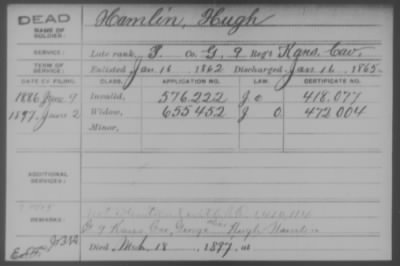 DEAD Hamlin, Hugh
NAME OF
SOLDIER:
SERVICE: Late rank, P. Co. G, 9 Reg't Kans. Cav.
TERM OF
SERVICE: Enlisted Jan. 16 1862 Discharged Jan. 16, 1865.
DATE OF FILING. CLASS. APPLICATION NO. LAW. CERTIFICATE NO.
1886 June 9 Invalid, 576.222 418.077
1897. June 2 Widow, 655452 472004
Minor,
ADDITIONAL
SERVICES:
REMARKS:
G 9 Kans Cav, George Hugh Hamlin
Died Mch. 18, 1897, at